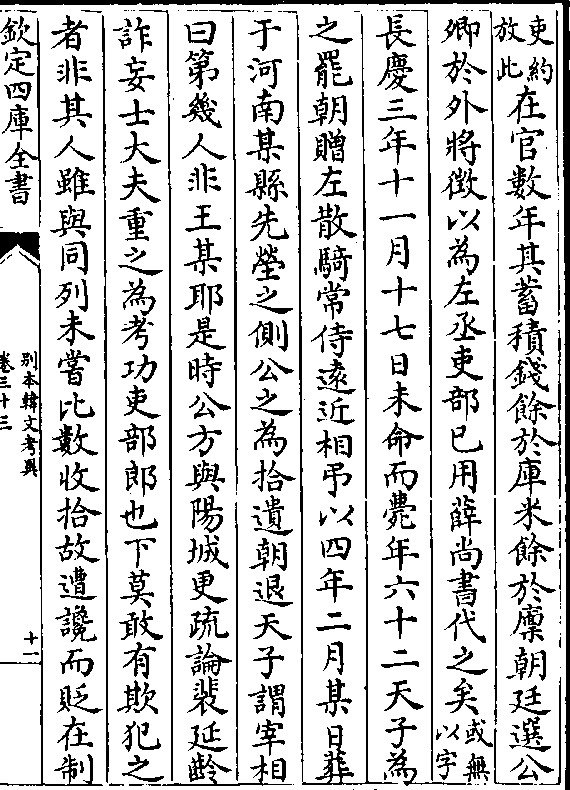 吏約放此在官數年其蓄積錢餘於庫米餘於廪朝廷選公
卿於外將徴以為左丞吏部已用薛尚書代之矣或無以字
長慶三年十一月十七日未命而薨年六十二天子為
之罷朝贈左散騎常侍逺近相弔以四年二月某日葬
于河南某縣先塋之側公之為拾遺朝退天子謂宰相
曰第幾人非王某耶是時公方與陽城更疏論裴延齡
詐妄士大夫重之為考功吏部郎也下莫敢有欺犯之
者非其人雖與同列未嘗比數收拾故遭讒而貶在制
欽定四庫全書
別本韓文考異
卷三十三
十一